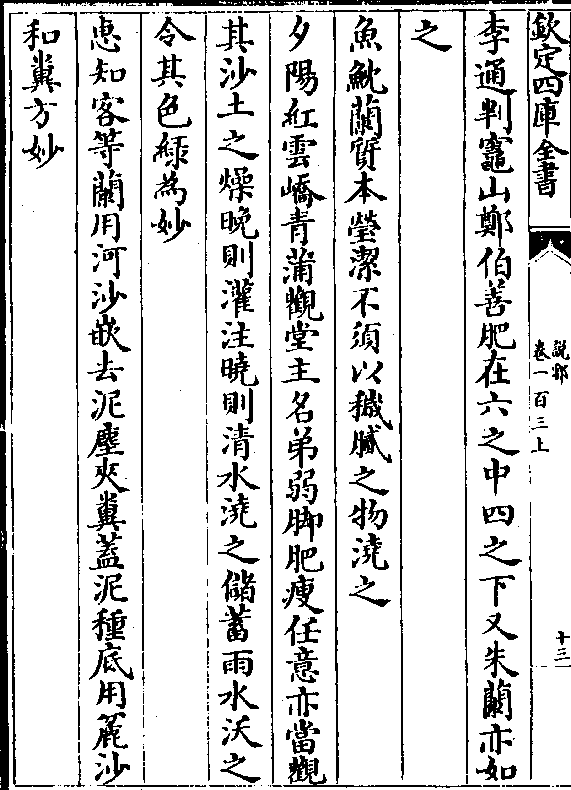 欽定四庫全書
說郛
卷一百三上
十三
李通判竈山鄭伯善肥在六之中四之下又朱蘭亦如
之
魚魫蘭質本瑩潔不須以穢膩之物澆之
夕陽紅雲嶠青蒲觀堂主名弟弱脚肥瘦任意亦當觀
其沙土之燥晚則灌注曉則清水澆之儲蓄雨水沃之
令其色緑為妙
惠知客等蘭用河沙嵌去泥塵夾糞蓋泥種底用麄沙
和糞方妙